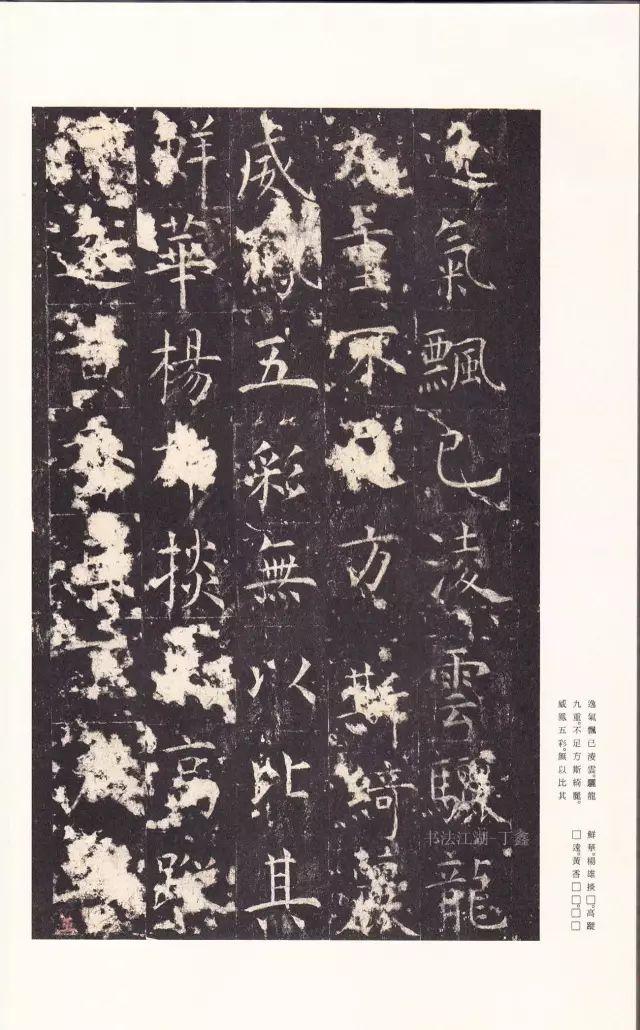 逸氣飄已凌雲驪龍
九重不足方斯綺麗
威鳳五彩無以比其
鮮華楊雄掞高蹤
遠黃香
逸氣飄已淩雲驪龍
九重。不足方斯綺麗。
威鳳五彩。無以比其
鮮華。楊雄掞□。高蹤
□遠。黃香□□。□□
书法江湖-丁鑫